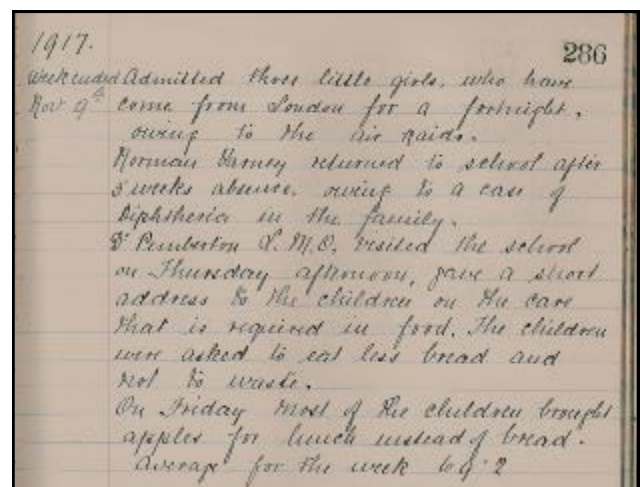 1917.
286
Week ended Admitted three little girls, who have
Nov 9th come from London for a fortnight,
owing to the air raids.
Norman Varney returned to school after
5 weeks absence, owing to a case of
Diphtheria in the family.
Dr Pemberton S.M.O. visited the school
on Thursday afternoon, gave a short
address to the children on the care
that is required in food. The children
were asked to eat less bread and
not to waste.
On Friday most of the children brought
apples for lunch instead of bread.
Average for the week 69.2